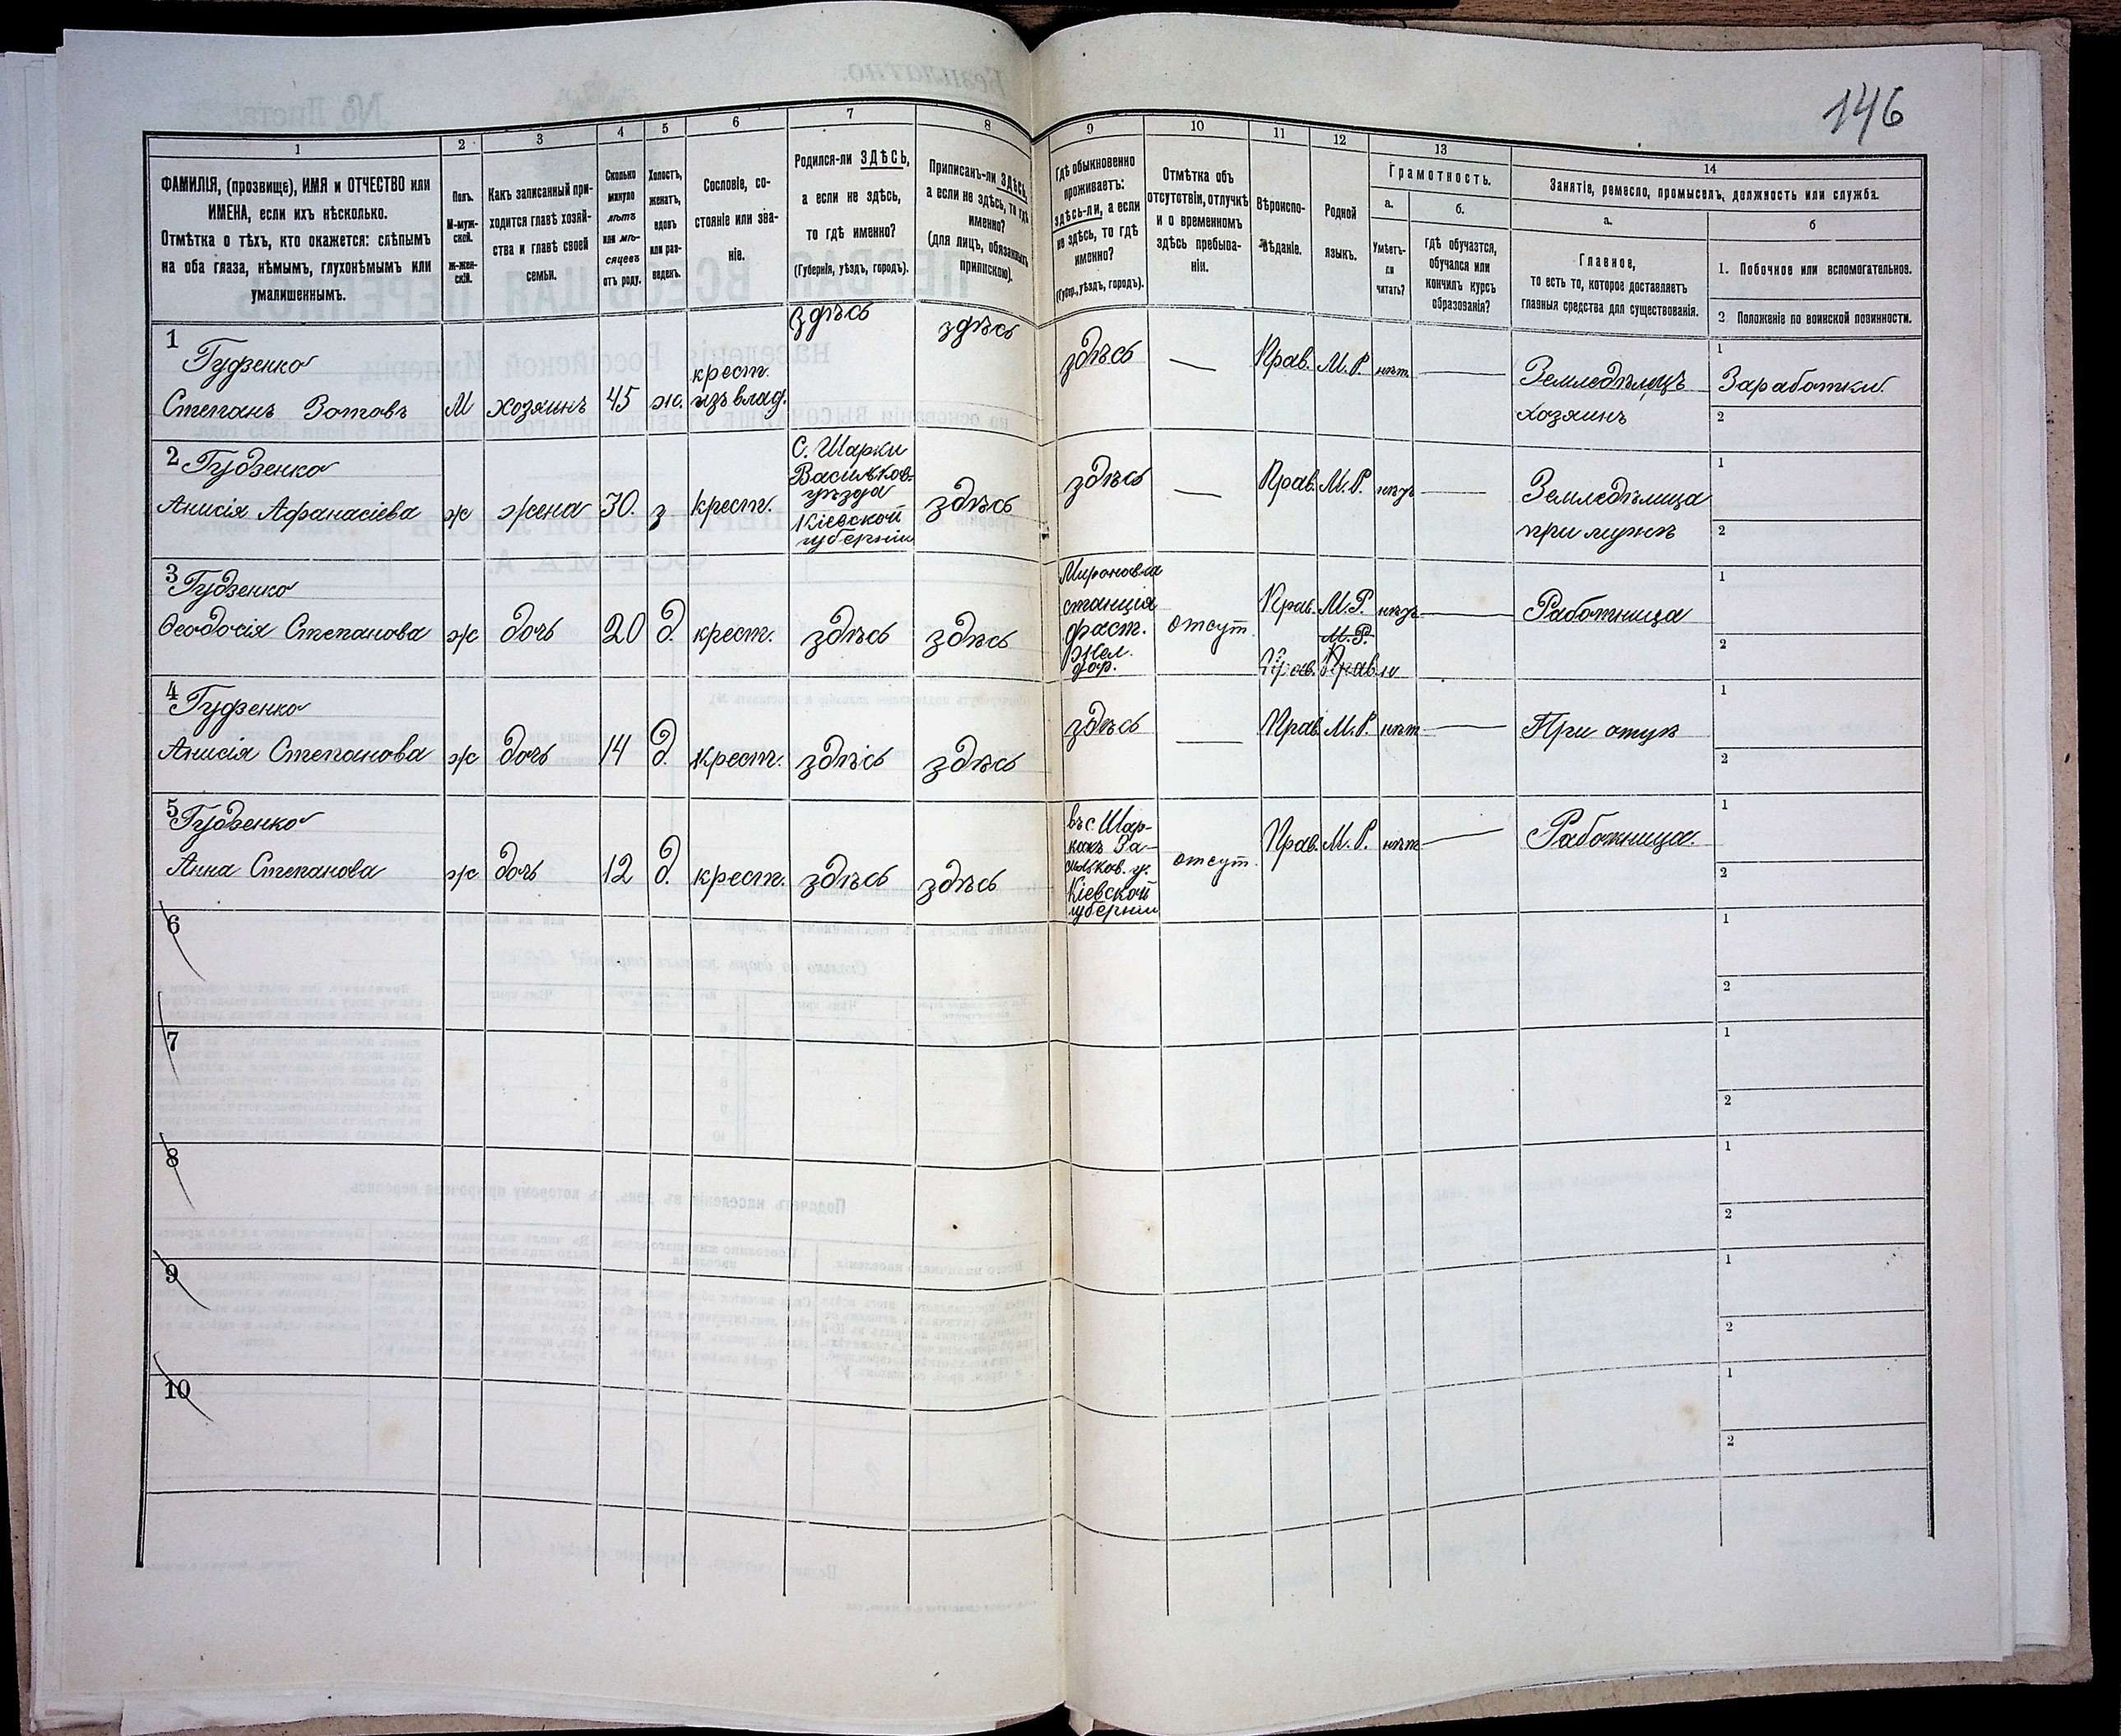 146
1
2
3
4
5
6
7
8
9
10
11
12
13
14
ФАМИЛІЯ, (прозвище), ИМЯ и ОТЧЕСТВО или
ИМЕНА, если ихъ нѣсколько.
Отмѣтка о тѣхъ, кто окажется: слѣпымъ
на оба глаза, нѣмымъ, глухонѣмымъ или
умалишеннымъ.
Полъ.
М-муж-
ской.
Ж-жен-
скій.
Какъ записанный при-
ходится главѣ хозяй-
ства и главѣ своей
семьи.
Сколько
минуло
лѣтъ
или мѣ-
сяцевъ
отъ роду.
Холостъ,
женатъ,
вдовъ
или раз-
веденъ.
Сословіе, со-
стояніе или зва-
ніе.
Родился-ли ЗДѢСЬ,
а если не здѣсь,
то гдѣ именно?
(Губернія, уѣздъ, городъ).
Приписанъ-ли ЗДѢСЬ,
а если не здѣсь, то гдѣ
именно?
(для лицъ, обязанныхъ
припискою).
Гдѣ обыкновенно
проживаетъ:
здѣсь-ли, а если
не здѣсь, то гдѣ
именно?
(Губер., уѣздъ, городъ).
Отмѣтка объ
отсутствіи, отлучкѣ
и о временномъ
здѣсь пребыва-
ніи.
Вѣроиспо-
вѣданіе.
Родной
языкъ.
Грамотность.
а.
б.
Умѣетъ-
ли
читать?
гдѣ обучается,
обучался или
кончилъ курсъ
образованія?
Занятіе, ремесло, промыселъ, должность или служба.
а.
б
Главное,
то есть то, которое доставляетъ
главныя средства для существованія.
1. Побочное или вспомогательное.
2 Положеніе по воинской повинности.
1
Гудзенко
Степанъ Зотовъ
М
хозяинъ
45
ж.
крест.
изъ влад.
здѣсь
здѣсь
здѣсь
—
Прав.
М.Р.
нѣт
—
Земледѣлецъ
хозяинъ
1
Заработки
2
2
Гудзенко
Анисія Афанасіева
ж
жена
30.
з
крест.
С. Шарки
Васильков-
уѣзда
Кіевской
губерніи
здѣсь
здѣсь
—
Прав.
М.Р.
нѣтъ
—
Земледѣлица
при мужѣ
1
2
3
Гудзенко
Ѳеодосія Степанова
ж
дочь
20
д.
крест.
здѣсь
здѣсь
Мироновка
станція
фаст.
Жел.
дор.
отсут.
Прав.
М.Р.
нѣтъ
—
Работница
М.Р.
Прав.
Прав.
1
2
4
Гудзенко
Анисія Степанова
ж
дочь
14
д.
крест.
здѣсь
здѣсь
здѣсь
—
Прав.
М.Р.
нѣт
—
При отцѣ
1
2
5
Гудзенко
Анна Степанова
ж
дочь
12
д.
крест.
здѣсь
здѣсь
въ с. Шар-
кахъ Ва-
сильков. у.
Кіевской
губерніи
отсут.
Прав.
М.Р.
нѣт
—
Работница.
1
2
6
1
2
7
1
2
8
1
2
9
1
2
10
1
2